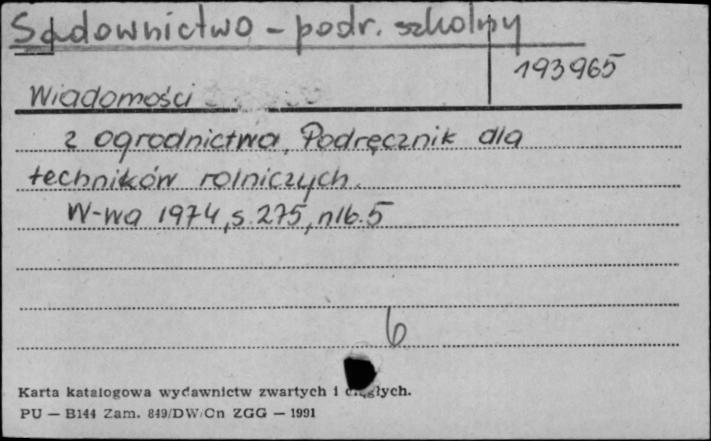 Sadownictwo - podr. szkolny
193965
Wiadomości
z ogrodnictwa. Podręcznik dla
techników rolniczych.
W-wa 1974, s. 275, nlb. 5
6
Karta katalogowa wydawnictw zwartych i ciągłych.
PU — B144 Zam. 849/DW/Cn ZGG — 1991